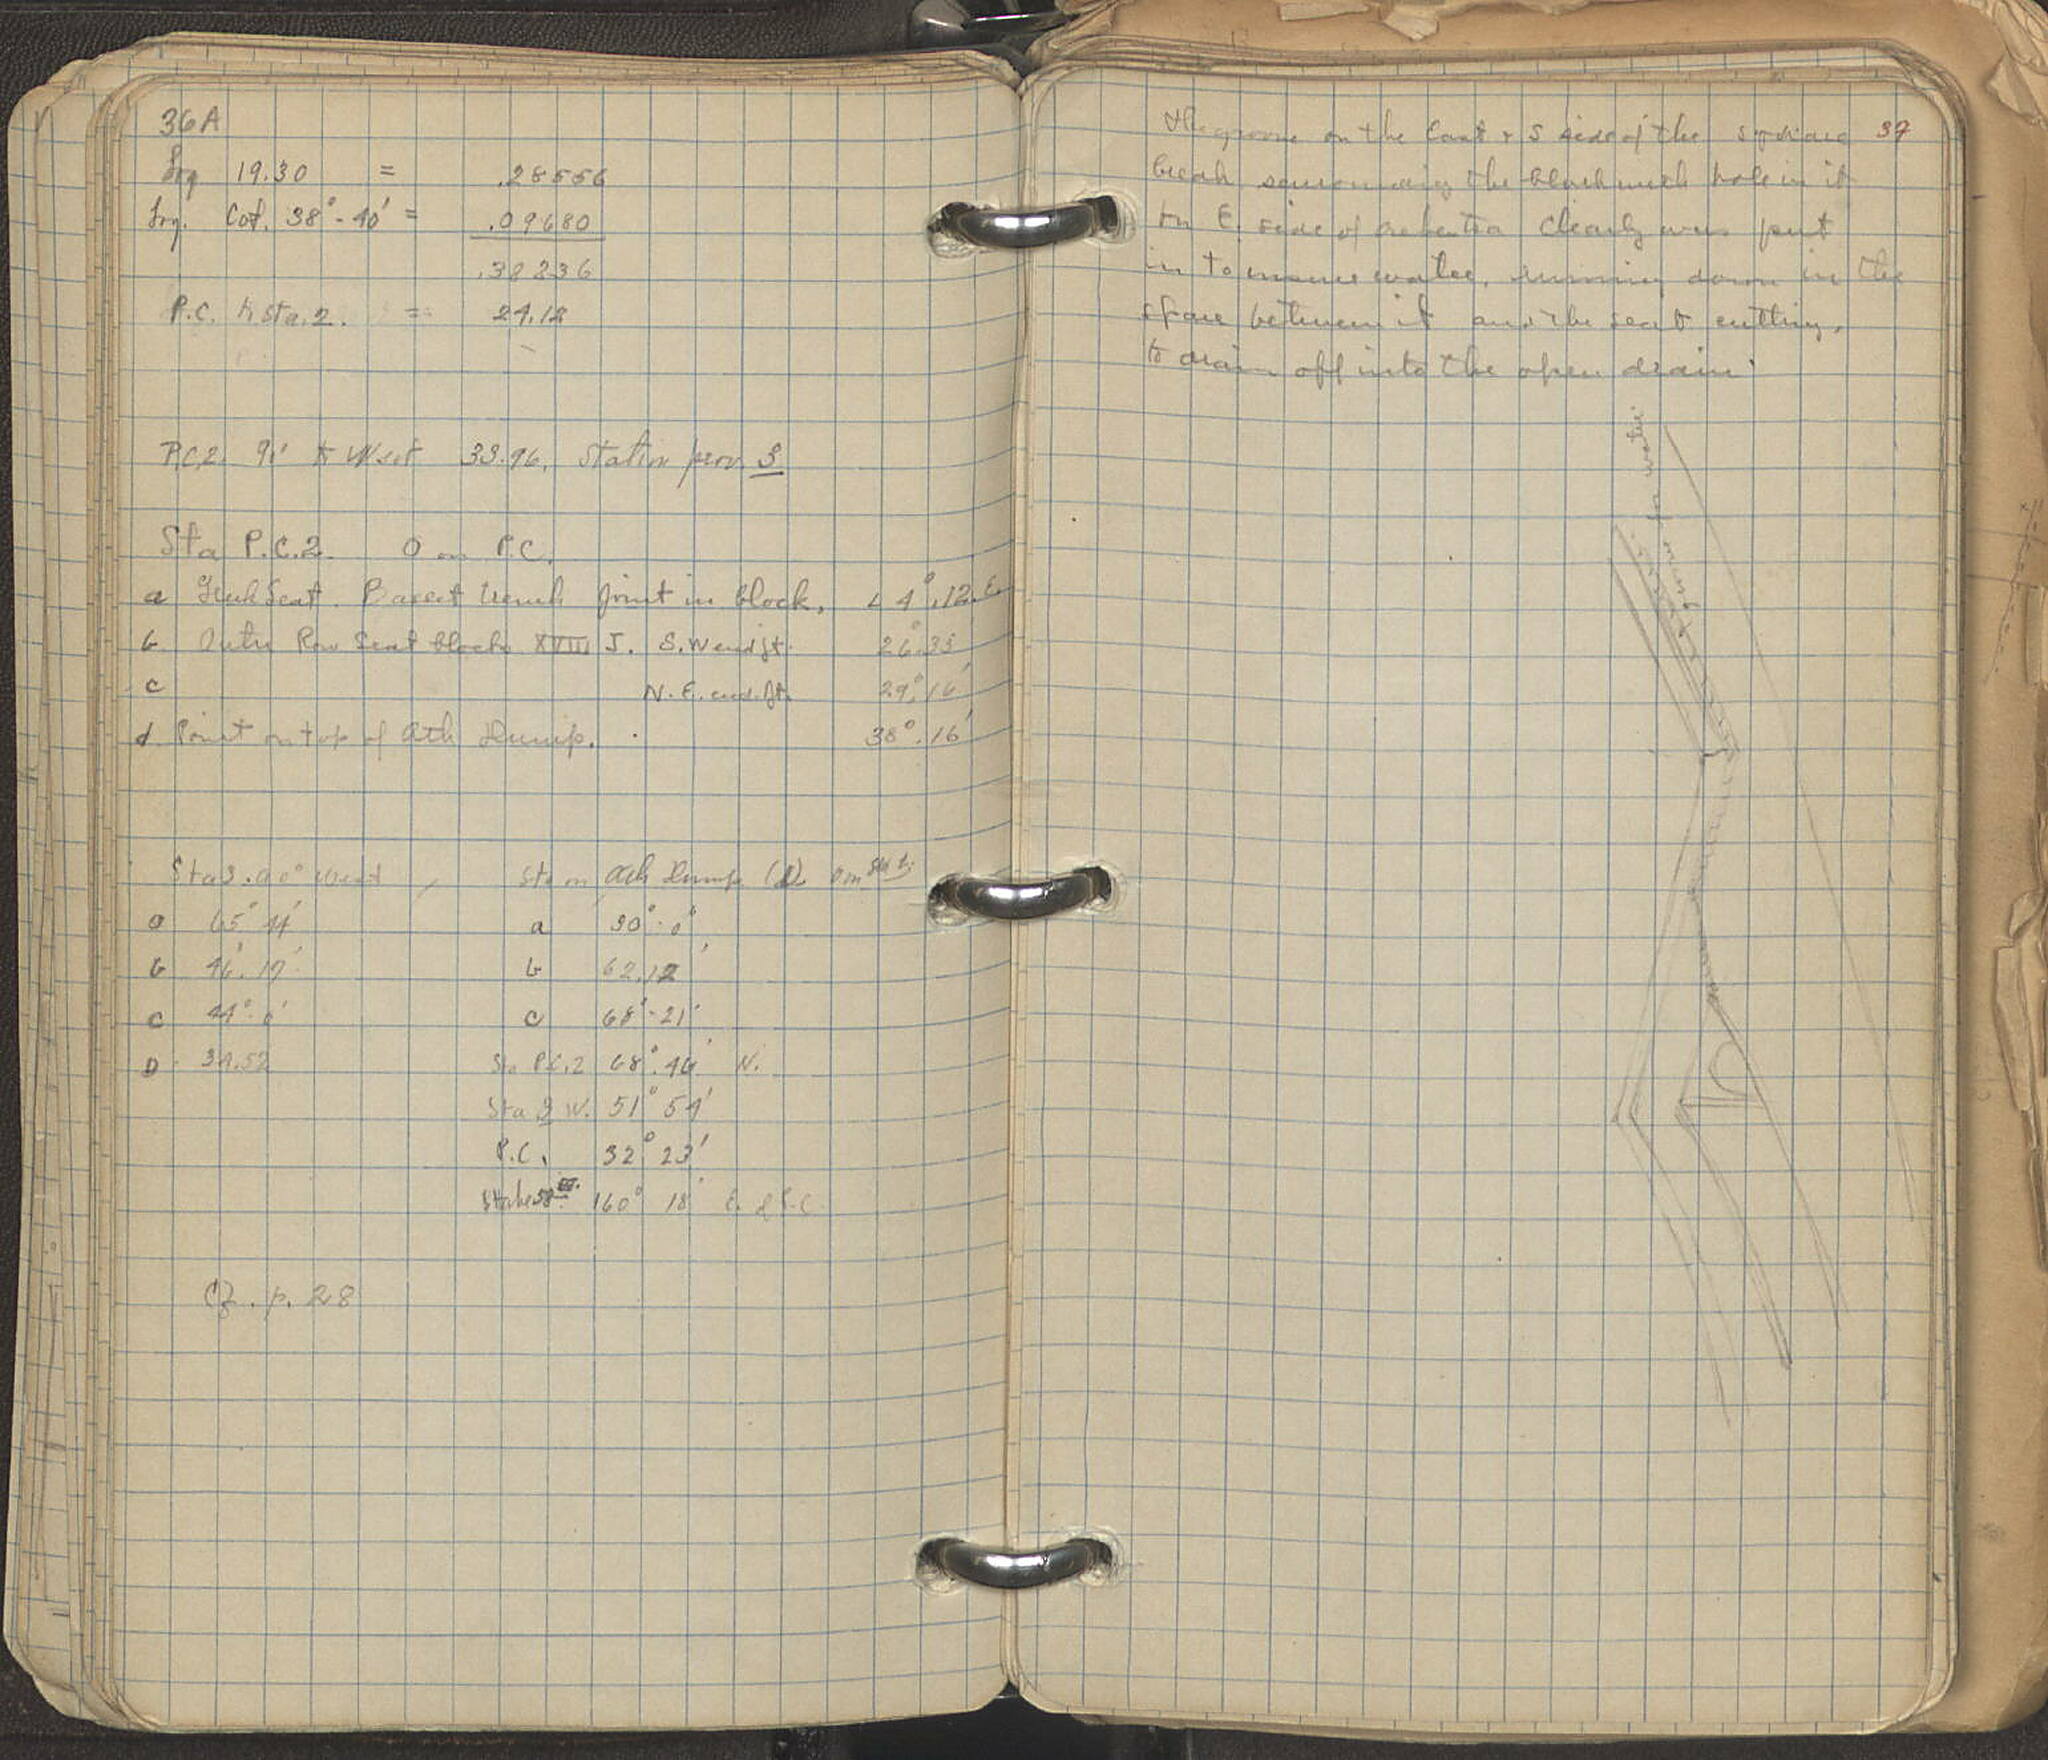 36A
Log 19.30 = .28556
Log. Cot. 38°-40' = .09680
.38236
P.C. to Sta. 2. = 24.12
P.C.2 90° to West 33.96, Station prov. 3
Sta P.C.2. 0 on P.C.
a Greek Seat. Trench joint in block, L 4°.12.E
b Outer Row Seat block XVIII J. S.W end jt. 26°.33
c N.E. end jt. 29°.16'
d Point on top of Ath Dump. 38°.16'
Sta 3. 90° West
a 65° 44'
b 46°. 17'
c 44°. 0'
D 34.52
Sta on Ath Dump (D. 0 on Sta 1.
a 90°. 0°
b 62.12'
c 68°-21'
Sta P.C.2 68°.46' N.
Sta 3 W. 51° 54'
P.C. 32° 23'
160° 18' E. of P.C.
Cf. p. 28
37
The groove on the East & S side of the square
break surrounding the block with hole in it
on E. side of orchestra clearly was put
in to insure water, running down in the
space between it and the seat cutting,
to drain off into the open drain.
for water